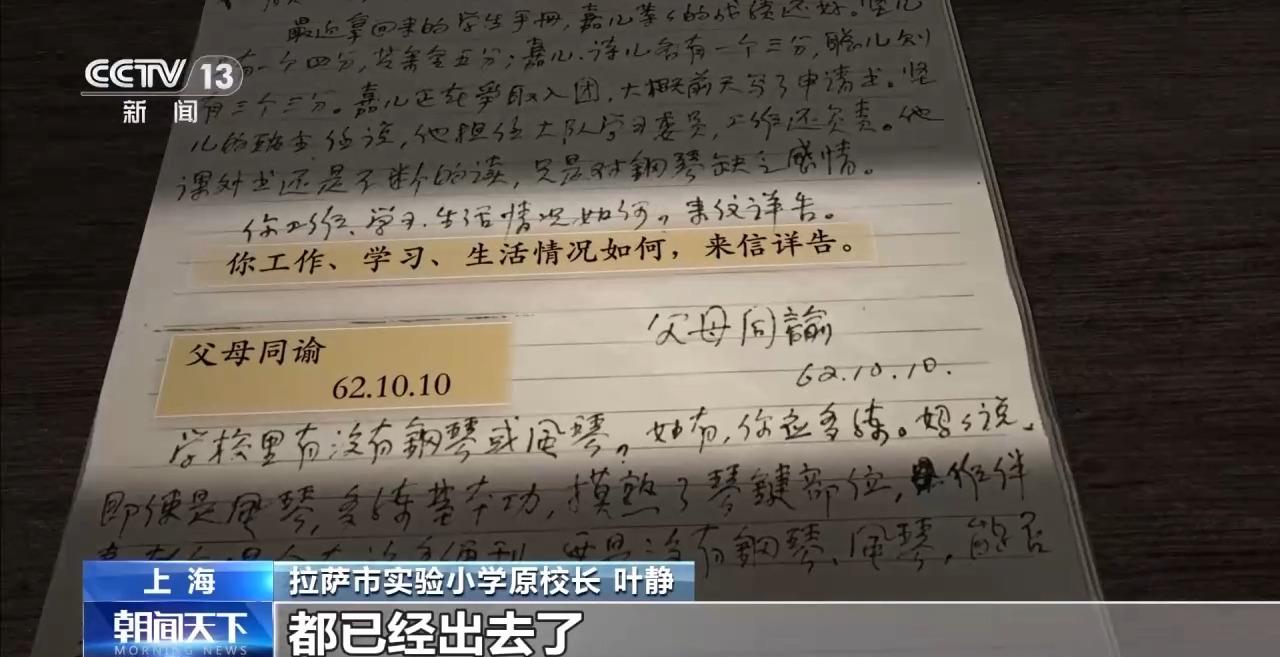 最近拿回来的学生手册，嘉儿等々的成绩还好。坚儿
一个四分，其余全五分；嘉儿、诗儿各有一个三分，聪儿则
有三个三分。嘉儿正在争取入团，大概前天写了申请书。坚
儿的班主任说，他担任大队学习委员，工作还负责。他
课外书还是不断的读，只是对鋼琴缺乏感情。
你工作、学习、生活情况如何，来信详告。
你工作、学习、生活情况如何，来信详告。
父母同諭
62.10.10.
父母同谕
62.10.10
学校里有没有鋼琴或风琴。如有，你应多练。妈々说，
即使是风琴，多练基本功，摸熟了琴键部位，作伴
没有鋼琴、风琴，能否
CCTV 13
新闻
上海
拉萨市实验小学原校长 叶静
朝闻天下
MORNING NEWS
都已经出去了